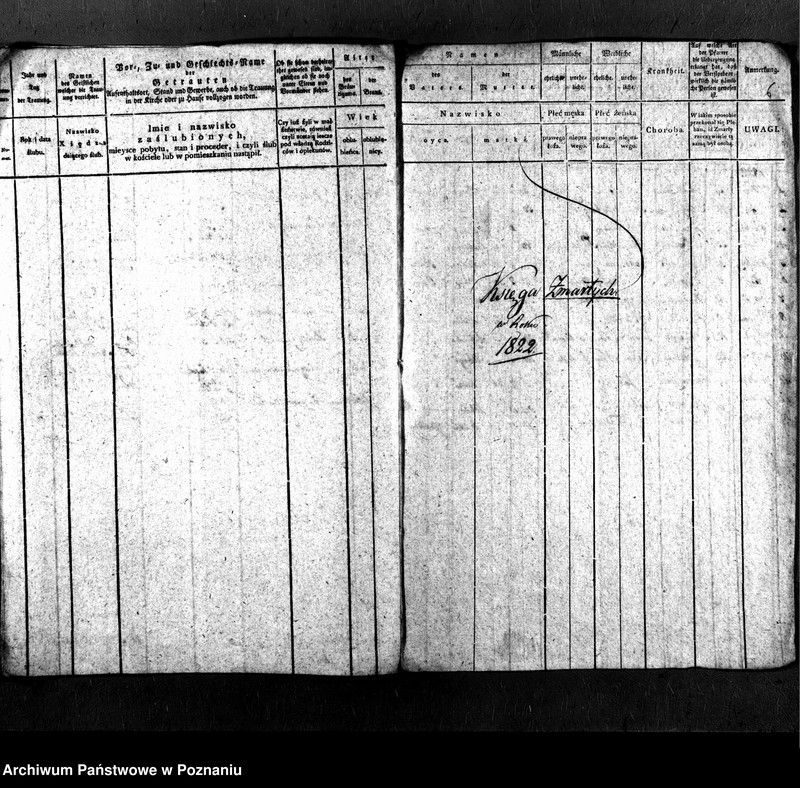 Jahr und
Tag
der Trauung.
Namen
des Geistlichen
welcher die Trau-
ung verrichtet.
Vor-, Zu- und Geschlechts-Name
der
Getrauten
Aufenthaltsort, Stand und Gewerbe, auch ob die Trauung
in der Kirche oder zu Hause vollzogen worden.
Ob sie schon verheirathet
gewesen sind,
gleichen ob sie noch
unter Eltern und
Vormünder stehen.
Alter
des
Bräutigams.
der
Braut.
Rok i data
ślubu.
Nazwisko
Xiędza
daiącego ślub.
Imie i nazwisko
zaślubionych,
mieysce pobytu, stan i proceder, i czyli ślub
w kościele lub w pomieszkaniu nastąpił.
Czy iuż byli w małżeństwie,
również
czyli zostaią ieszcze
pod władzą Rodziców
i opiekunów.
Wiek
oblubieńca.
oblubienicy.
Namen
des
Vaters.
der
Mutter.
Männliche
eheliche.
unehe-
liche.
Weibliche
eheliche.
unehe-
liche.
Krankheit.
Auf welche Art
der Pfarrer
die Ueberzeugung
erlangt hat, daß
der Verstorbene
wirklich die nämli-
che Person gewesen
ist.
Anmerkung.
6
Nazwisko
oyca.
matki.
Płeć męska
prawego
łoża.
niepra-
wego.
Płeć żeńska
prawego
łoża.
niepra-
wego.
Choroba.
W iakim sposobie
przekonał się Ple-
ban, iż Zmarły
rzeczywiście tą
samą był osobą.
UWAGI.
Księga Zmarłych
w Roku
1822
Archiwum Państwowe w Poznaniu